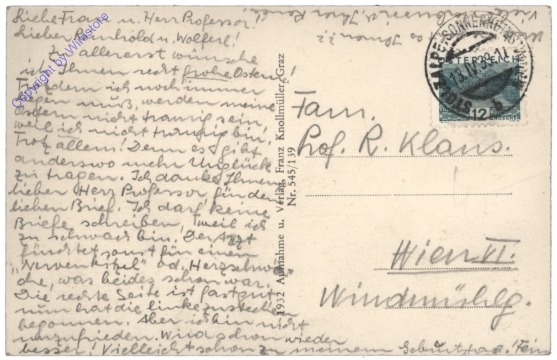 Liebe Frau u. Herr Professor!
Lieber Reinhold u. Wolferl!
Zu allererst wünsche
ich Ihnen recht frohe Ostern!
Trotzdem ich noch immer
liegen muß, werden meine
Ostern nicht traurig sein,
weil ich nicht traurig bin,
Trotz allem! Denn es gibt
anderswo mehr Unglück
zu tragen. Ich danke Ihnen
lieber Herr Professor für den
lieben Brief. Ich darf keine
Briefe schreiben, weil ich
zu schwach bin. Der Arzt
fürchtet sonst für einen
"Nervenkitzel" od. Herzschwä-
che, was beides schon war.
Die rechte Seite ist fast gut
nun hat die linke zu stechen
begonnen. Aber ich bin nicht
unzufrieden. Wird schon wieder
besser! Vielleicht schon zu meinem Geburtstag!
1932 Aufnahme u. Verlag Franz Knollmüller, Graz
Nr. 545/139
STOLZALPE
ÖSTERREICH
12
Fam.
Prof. R. Klaus.
Wien VI.
Windmühlg.
Copyright by Winstore